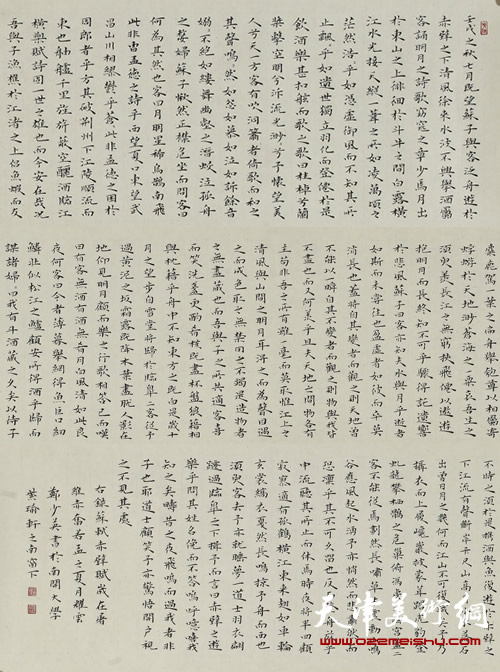 壬戌之秋七月既望蘇子與客泛舟遊於
赤壁之下清風徐來水波不興舉酒屬
客誦明月之詩歌窈窕之章少焉月出
於東山之上徘徊於斗牛之間白露橫
江水光接天縱一葦之所如凌萬頃之
茫然浩々乎如憑虛御風而不知其所
止飄々乎如遺世獨立羽化而登僊於是
飲酒樂甚扣舷而歌之歌曰桂棹兮蘭
槳擊空明兮泝流光渺々兮予懷望美
人兮天一方客有吹洞簫者倚歌而和之
其聲嗚々然如怨如慕如泣如訴餘音
嫋々不絕如縷舞幽壑之潛蛟泣孤舟
之嫠婦蘇子愀然正襟危坐而問客曰
何為其然也客曰月明星稀烏鵲南飛
此非曹孟德之詩乎西望夏口東望武
昌山川相繆鬱乎蒼々此非孟德之困於
周郎者乎方其破荊州下江陵順流而
東也舳艫千里旌旂蔽空釃酒臨江
橫槊賦詩固一世之雄也而今安在哉況
吾與子漁樵於江渚之上侶魚蝦而友
麋鹿駕一葉之扁舟舉匏尊以相屬寄
蜉蝣於天地渺蒼海之一粟哀吾生之
須臾羨長江之無窮挾飛僊以遨遊
抱明月而長終知不可乎驟得託遺響
於悲風蘇子曰客亦知夫水與月乎逝者
如斯而未嘗往也盈虛者如彼而卒莫
消長也蓋將自其變者而觀之則天地曾
不能以一瞬自其不變者而觀之則物與我皆
無盡也而又何羨乎且夫天地之間物各有
主苟非吾之所有雖一毫而莫取惟江上之
清風與山間之明月耳得之而為聲目遇
之而成色取之無禁用之不竭是造物者
之無盡藏也而吾與子之所共適客喜
而笑洗盞更酌肴核既盡杯盤狼籍相
與枕藉乎舟中不知東方之既白是歲十
月之望步自雪堂將歸於臨皋二客從予
過黃泥之坂霜露既降木葉盡脫人影在
地仰見明月顧而樂之行歌相答已而嘆
曰有客無酒有酒無肴月白風清如此良
夜何客曰今者薄暮舉網得魚巨口細
鱗狀似松江之鱸顧安所得酒乎歸而
謀諸婦曰我有斗酒藏之久矣以待子
不時之須於是攜酒與魚復遊於赤壁之
下江流有聲斷岸千尺山高月小水落石
出曾日月之幾何而江山不可復識矣予乃
攝衣而上履巉巖披蒙茸踞虎豹登
虬龍攀栖鶻之危巢俯馮夷之幽宮蓋二
客不能從焉劃然長嘯草木震動山鳴
谷應風起水涌予亦悄然而悲肅然而恐
凜乎其不可久留也反而登舟放乎
中流聽其所止而休焉時夜將半四顧
寂寥適有孤鶴橫江東來翅如車輪
玄裳縞衣戛然長鳴掠予舟而西也
須臾客去予亦就睡夢一道士羽衣翩
躚過臨皋之下揖予而言曰赤壁之遊
樂乎問其姓名俛而不答嗚呼噫嘻我
知之矣疇昔之夜飛鳴而過我者非
子也耶道士顧笑予亦驚悟開戶視
之不見其處
右錄蘇軾赤壁賦歲在
維赤奮若孟之夏月
鄭少英書於南開大學
軒之南窗下
天津美术網
www.022meishu.com